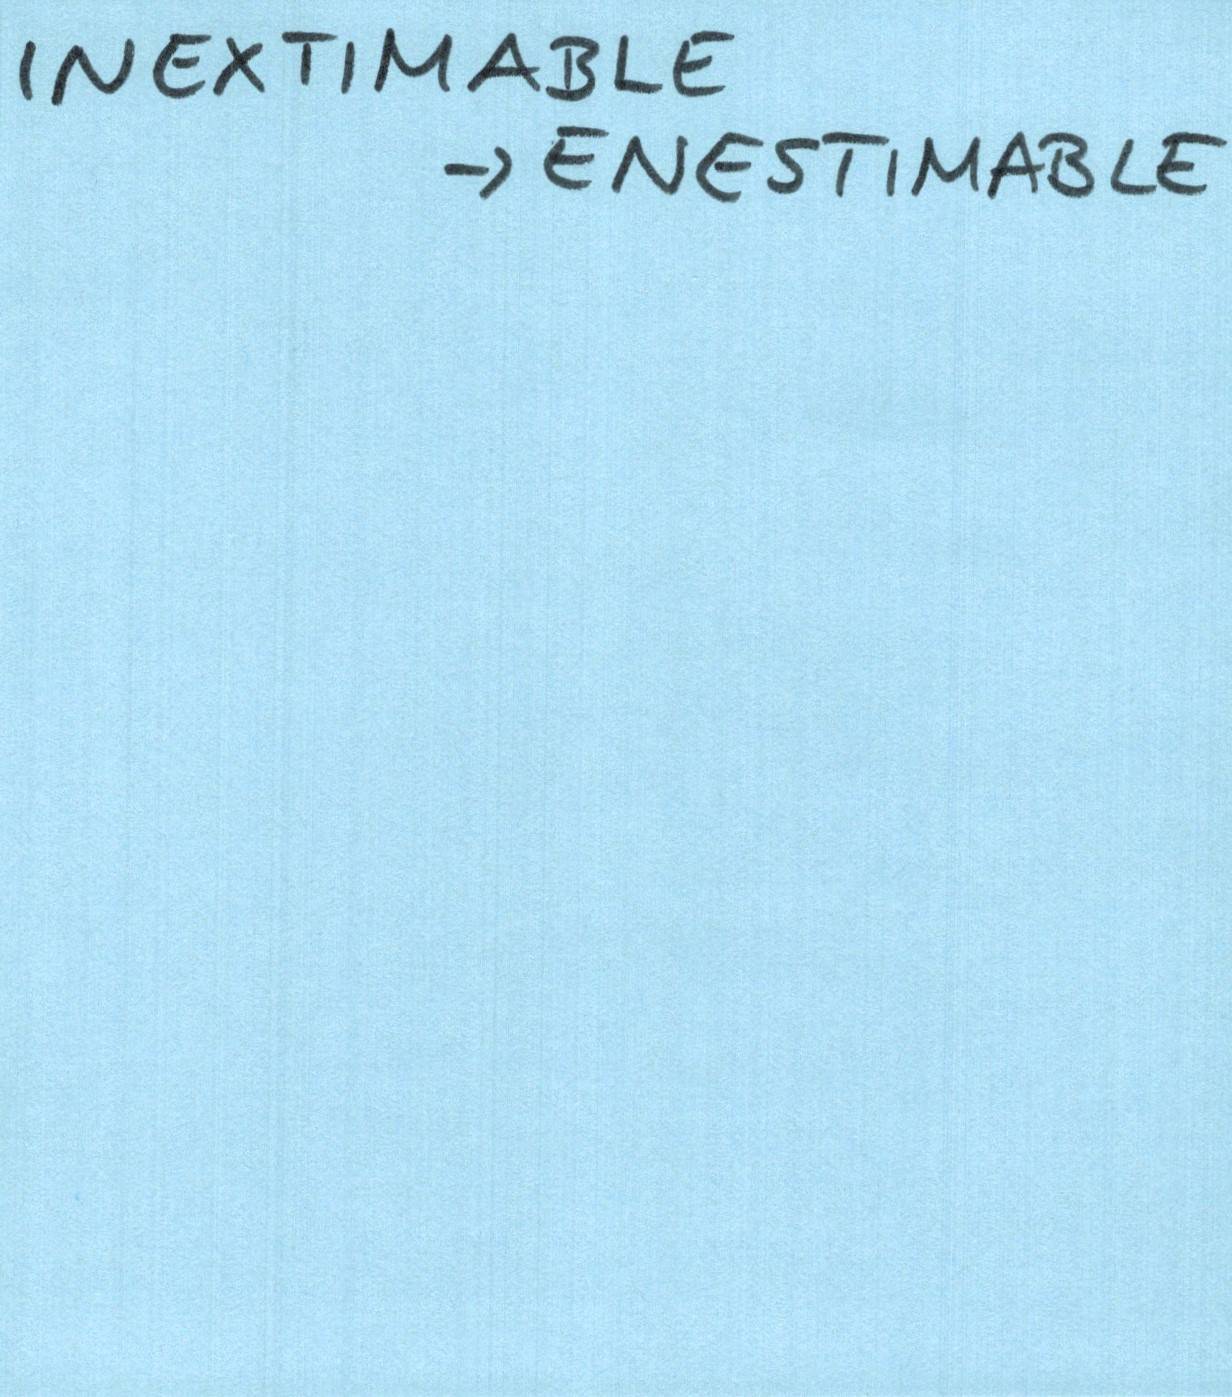 INEXTIMABLE
-> ENESTIMABLE